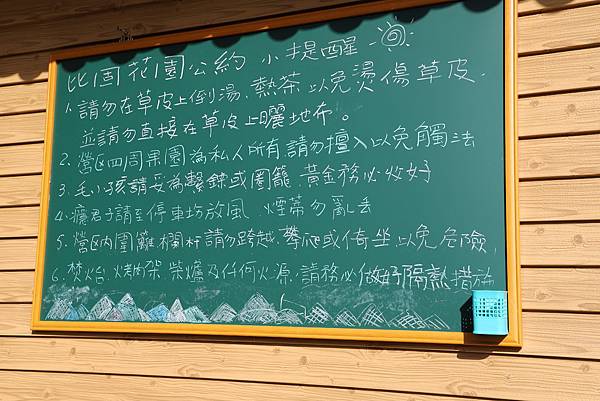 比固花園公約 小提醒
1. 請勿在草皮上倒湯、熱茶以免燙傷草皮，
並請勿直接在草皮上曬地布。
2. 營區四周果園為私人所有,請勿擅入以免觸法
3. 毛小孩請妥為繫鍊或圈籠,黃金務必收好
4. 癮君子請至停車坊放風，煙蒂勿亂丟
5. 營區內圍籬、欄杆請勿跨越、攀爬或倚坐,以免危險,
6. 焚火台、烤肉架、柴爐及任何火源,請務必做好隔熱措施